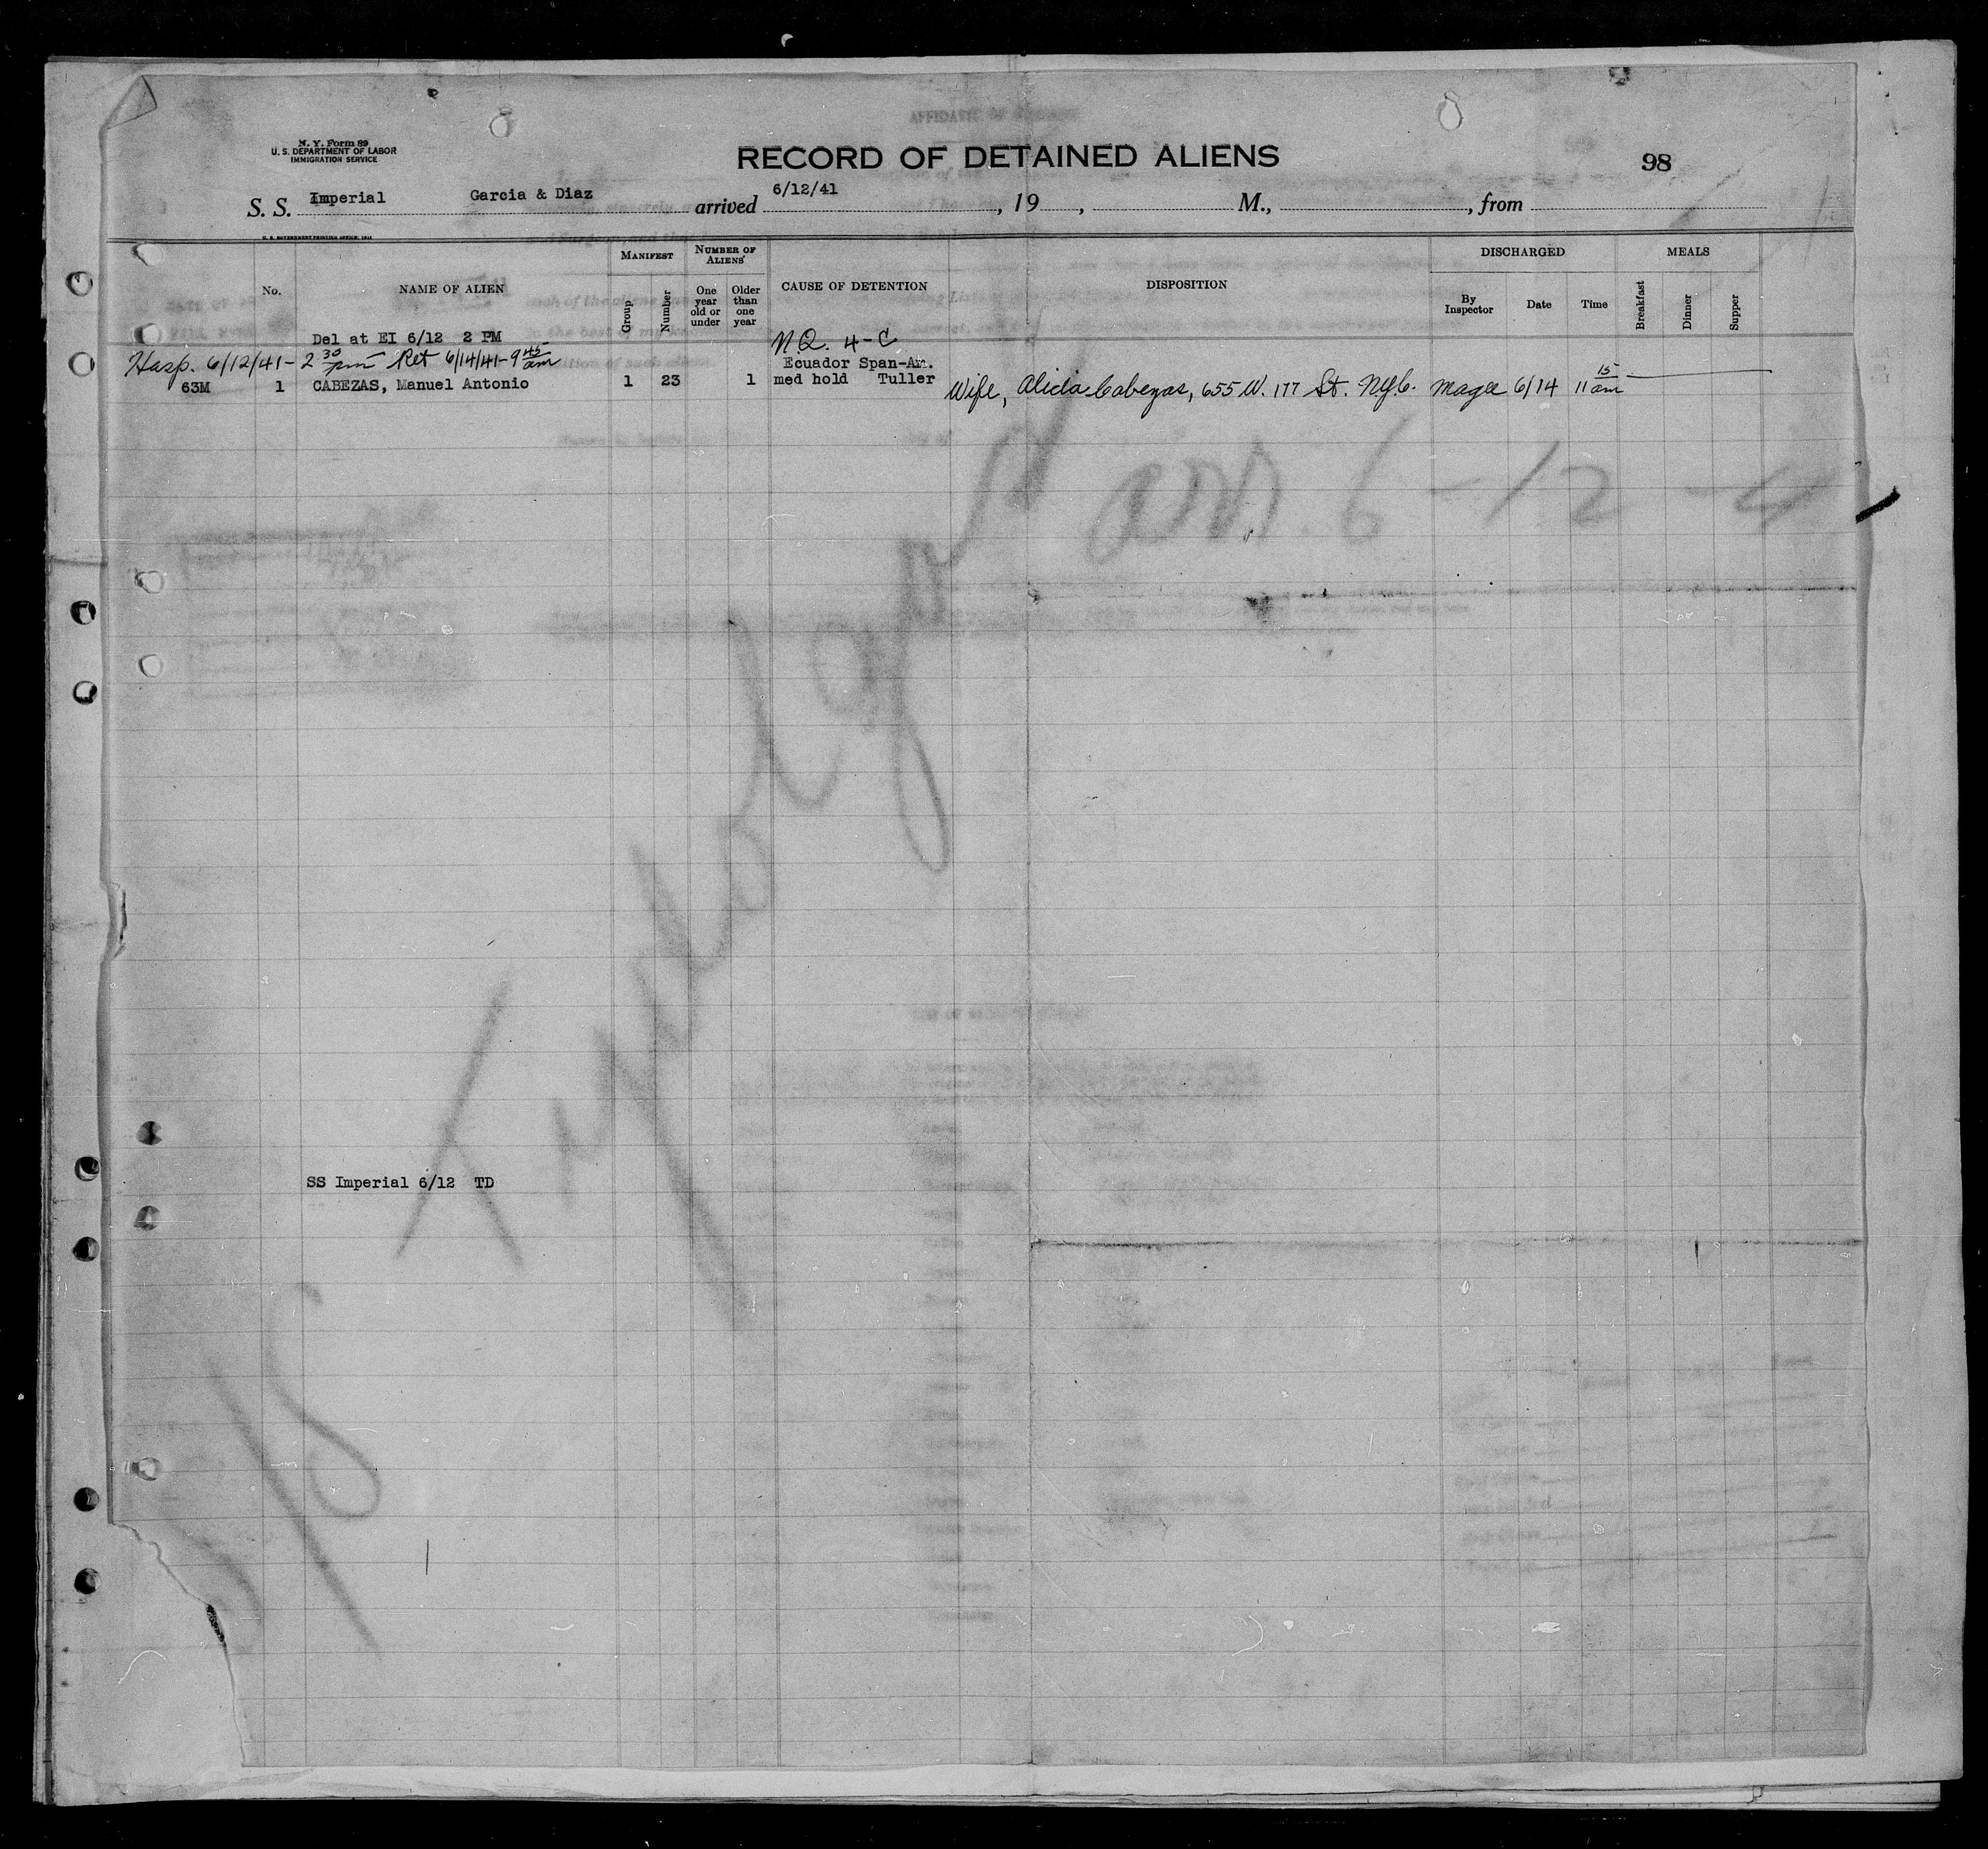 N. Y. Form 89
U. S. DEPARTMENT OF LABOR
IMMIGRATION SERVICE
RECORD OF DETAINED ALIENS
98
S. S. Imperial Garcia & Diaz arrived 6/12/41, 19 , M., , from
U. S. GOVERNMENT PRINTING OFFICE
No.
NAME OF ALIEN
MANIFEST
Group
Number
NUMBER OF ALIENS'
One year old or under
Older than one year
CAUSE OF DETENTION
DISPOSITION
DISCHARGED
By Inspector
Date
Time
MEALS
Breakfast
Dinner
Supper
Del at EI 6/12 2 PM
N.Q. 4-C
Hosp. 6/12/41-2 30 pm Ret 6/14/41-9 45 am
Ecuador Span-Am.
63M 1 CABEZAS, Manuel Antonio 1 23 1 med hold Tuller Wife, Alicia Cabezas, 655 W. 177 St. N.Y.C. Magee 6/14 11 15 am
arr. 6-12-4
SS Imperial 6/12 TD